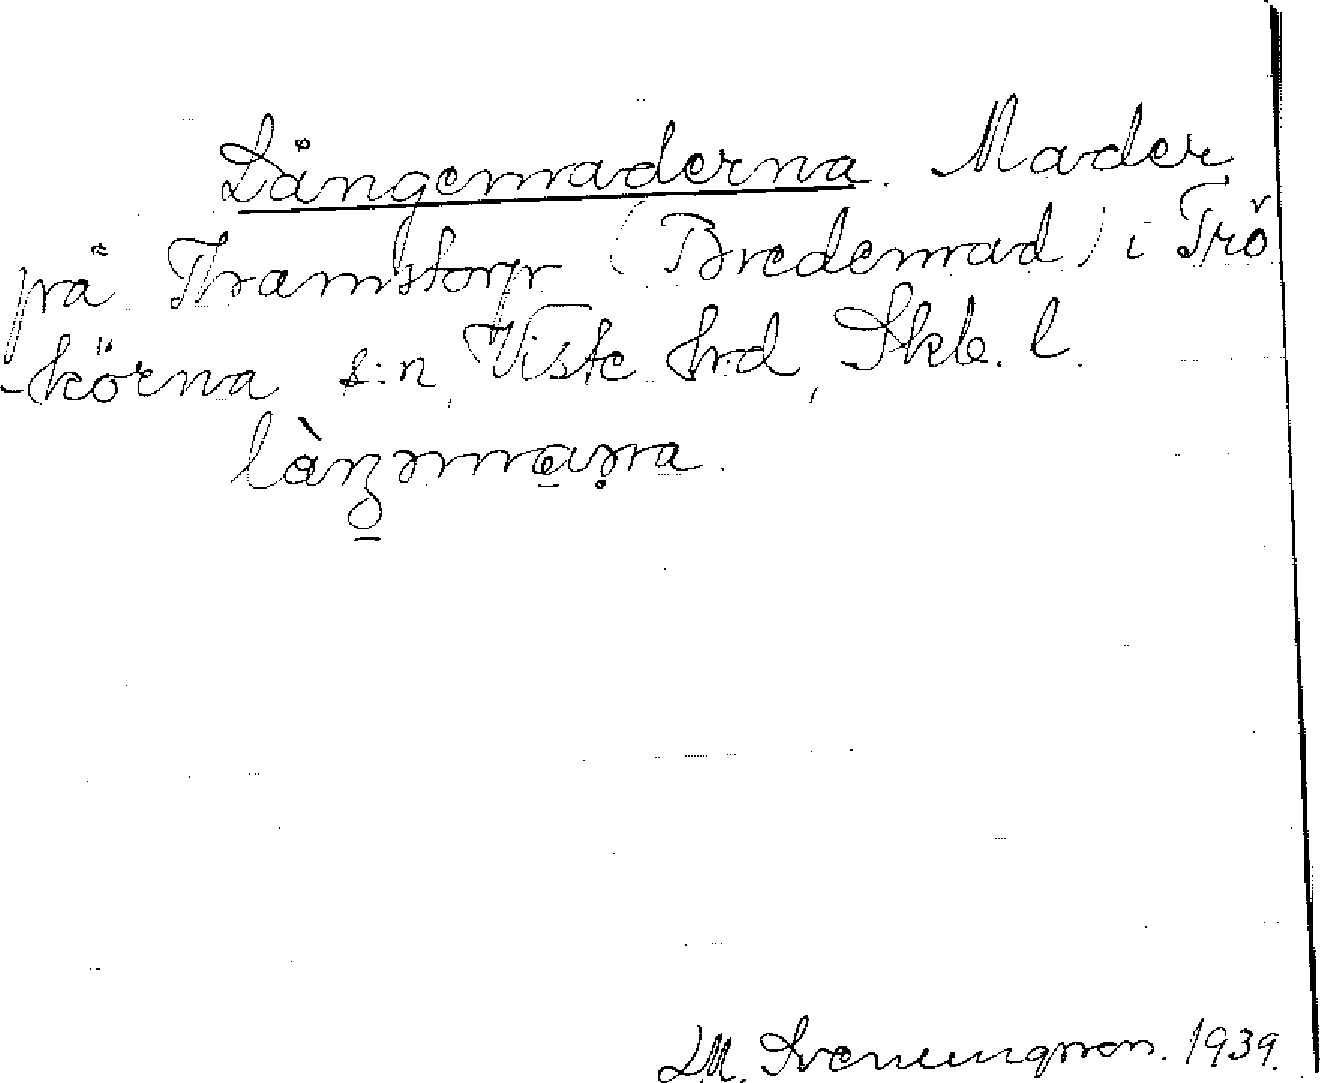 Långemaderna. Mader
på Thamstorp (Bredemad) i Trö
-körna s:n, Viste hrd, Skb. l.
D.M. Svenungsson. 1939.